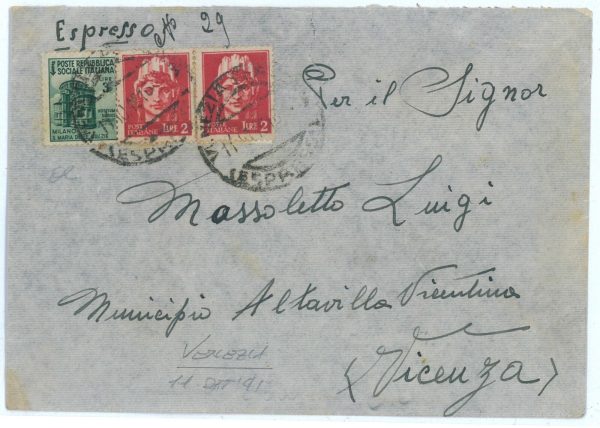 Espresso No 29
POSTE REPUBBLICA
SOCIALE ITALIANA
LIRE
3
MILANO
S. MARIA DELLE GRAZIE
POSTE
ITALIANE
LIRE 2
POSTE
ITALIANE
LIRE 2
VENEZIA
(ESPR
(ESPR
Per il Signor
Massoletto Luigi
Municipio Altavilla Vicentina
(Vicenza)